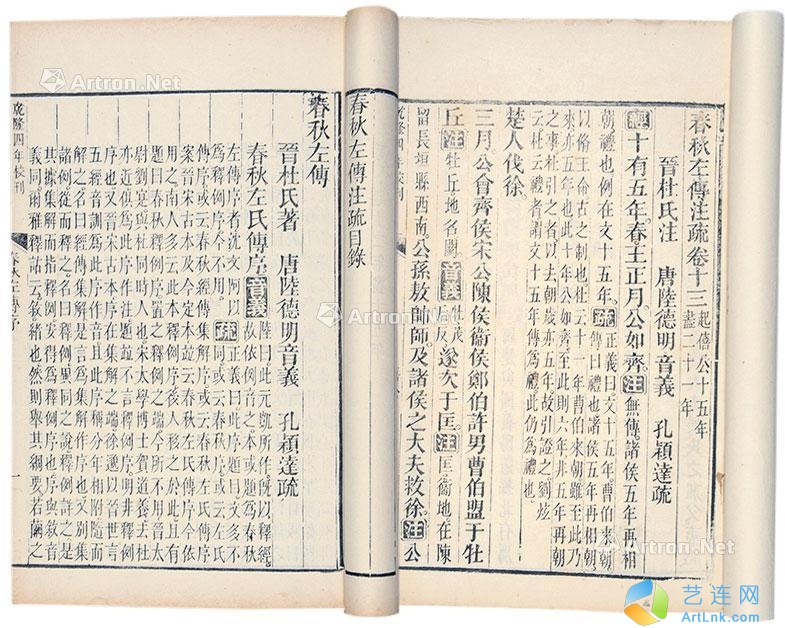 春秋左傳注疏卷十三 起僖公十五年
盡二十一年
晉杜氏注 唐陸德明音義 孔穎達疏
經十有五年春王正月公如齊注無傳諸侯五年再相
朝禮也例在文十五年疏正義曰文十五年曹伯來朝
傳曰禮也諸侯五年再相朝
以脩王命古之制也杜云十一年曹伯來朝雖至此乃
來亦五年也此十年公如齊至此則六年非五年再朝
之事杜引之者以去朝歲亦五年故引證之劉炫
云杜云禮者謂文十五年傳為禮此仍為禮也
楚人伐徐
三月公會齊侯宋公陳侯衞侯鄭伯許男曹伯盟于牡
丘注牡丘地名闕音義牡茂
反遂次于匡注匡衞地在陳
留長垣縣西南公孫敖帥師及諸侯之大夫救徐注公
乾隆四年校刊
春秋左傳注疏目錄
春秋左傳
晉杜氏著 唐陸德明音義 孔穎達疏
春秋左氏傳序音義陸曰此元凱所作旣以釋經
故依例音之本或題為春秋
左傳序者沈文阿以疏正義曰此序題目文多不
同或云春秋序或云左氏
傳序或云春秋經傳集解序或云春秋左氏傳序
案晉宋古本及今定本並云春秋左氏傳序今依
用之南人多云此本釋例序後人移之於此且有
題曰春秋釋例序置之釋例之端今所不用晉太
尉劉寔與杜同時人也宋太學博士賀道養去杜
亦近俱為此序作注題並不言釋例序明非釋例
序也又晉宋古本序在集解之端徐邈以晉世言
五經音訓為此序作音且此序稱分年相附隨而
解之名曰經傳集解是言為集解作序也又別集
諸例從而釋之名曰釋例異同之說釋例詳之是
其據集解而指釋例安得為釋例序也序與敘音
義同爾雅釋詁云敘緒也然則舉其綱要若繭之
乾隆四年校刊
春秋左傳序
一
Artron.Net
Artron.Net
Artron.Net
Artron.Net
Artron.Net
艺连网
ArtLnk.com